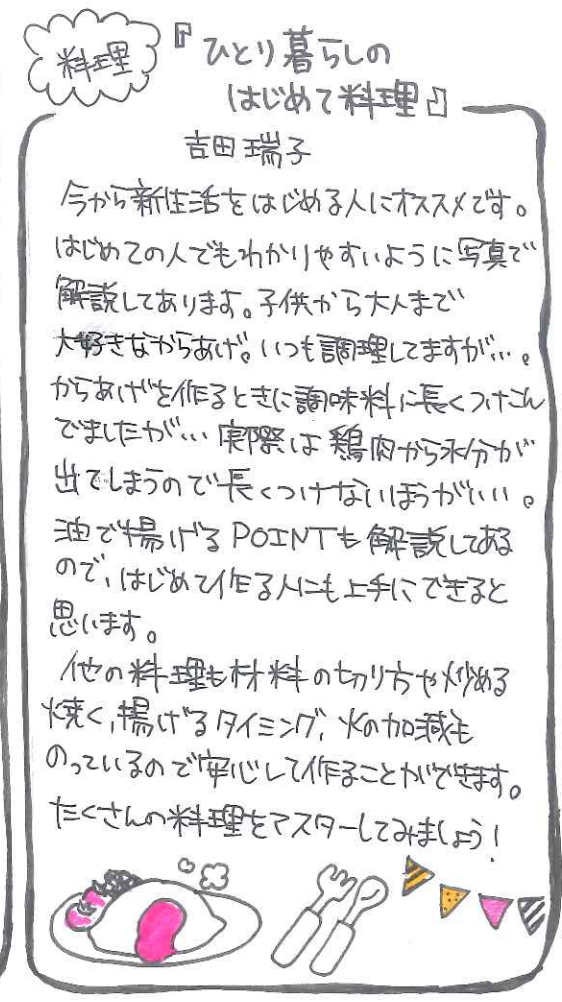 料理
『ひとり暮らしの
はじめて料理』
吉田瑞子
今から新生活をはじめる人にオススメです。
はじめての人でもわかりやすいように写真で
解説してあります。子供から大人まで
大好きなからあげ。いつも調理してますが…。
からあげを作るときに調味料に長くつけこん
でましたが…実際は鶏肉から水分が
出てしまうので長くつけないほうがいい。
油で揚げるPOINTも解説してある
ので、はじめて作る人にも上手にできると
思います。
他の料理も材料の切り方や炒める
焼く、揚げるタイミング、火の加減も
のっているので安心して作ることができます。
たくさんの料理をマスターしてみましょう!